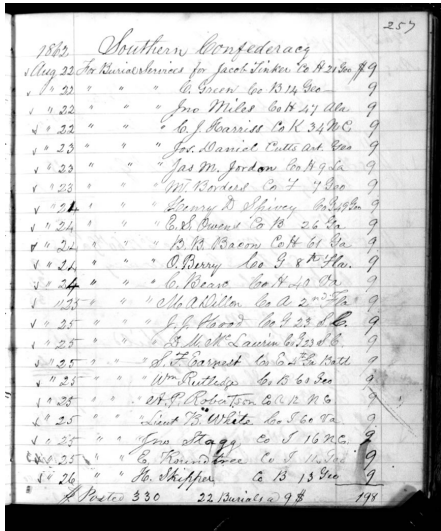 257
1862 Southern Confederacy
Aug 22 For Burial Services for Jacob Tinker Co H 21 Geo $ 9
" 22 " " " C. Green Co B 14 Geo 9
" 22 " " " Jno Miles Co H 47 Ala 9
" 22 " " " C. J. Harriss Co K 34 N C 9
" 23 " " " Jos. Daniel Cutts Art. Geo 9
" 23 " " " Jas M. Jordon Co H 9 La 9
" 23 " " " Borders Co F 7 Geo 9
" 24 " " " Henry D Co Geo 9
" 24 " " " E. S. Owens Co B 26 Ga 9
" 24 " " " B. B. Bacon Co H 61 Ga 9
" 24 " " " O. Berry Co G 8th Fla. 9
" 24 " " " C. Co H 40 9
" 25 " " " M. A. Dillon Co A 2nd 9
" 25 " " " J. J. Hood Co 23 S. C. 9
" 25 " " " Laurin Co 23 S. C. 9
" 25 " " " S. F. Earnest Co Ga Batl 9
" 25 " " " Wm Co B 61 Geo 9
" 25 " " " A. P. Robertson Co 12 N C 9
" 25 " " " Lieut B. White Co I 60 Va 9
" 25 " " " Jno Stagg Co I 16 N C. 9
" 25 " " " E. Roundtree Co I Geo 9
" 26 " " " H. Skipper Co B 13 Geo 9
Posted 330 22 Burials @ 9$ 198